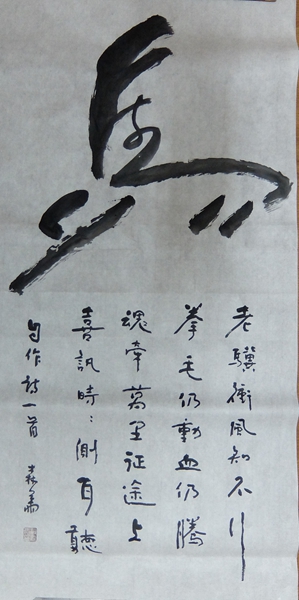 馬
老驥衝風知不行
拳毛仍動血仍騰
魂牽萬里征途上
喜訊時〻側耳聽
自作詩一首